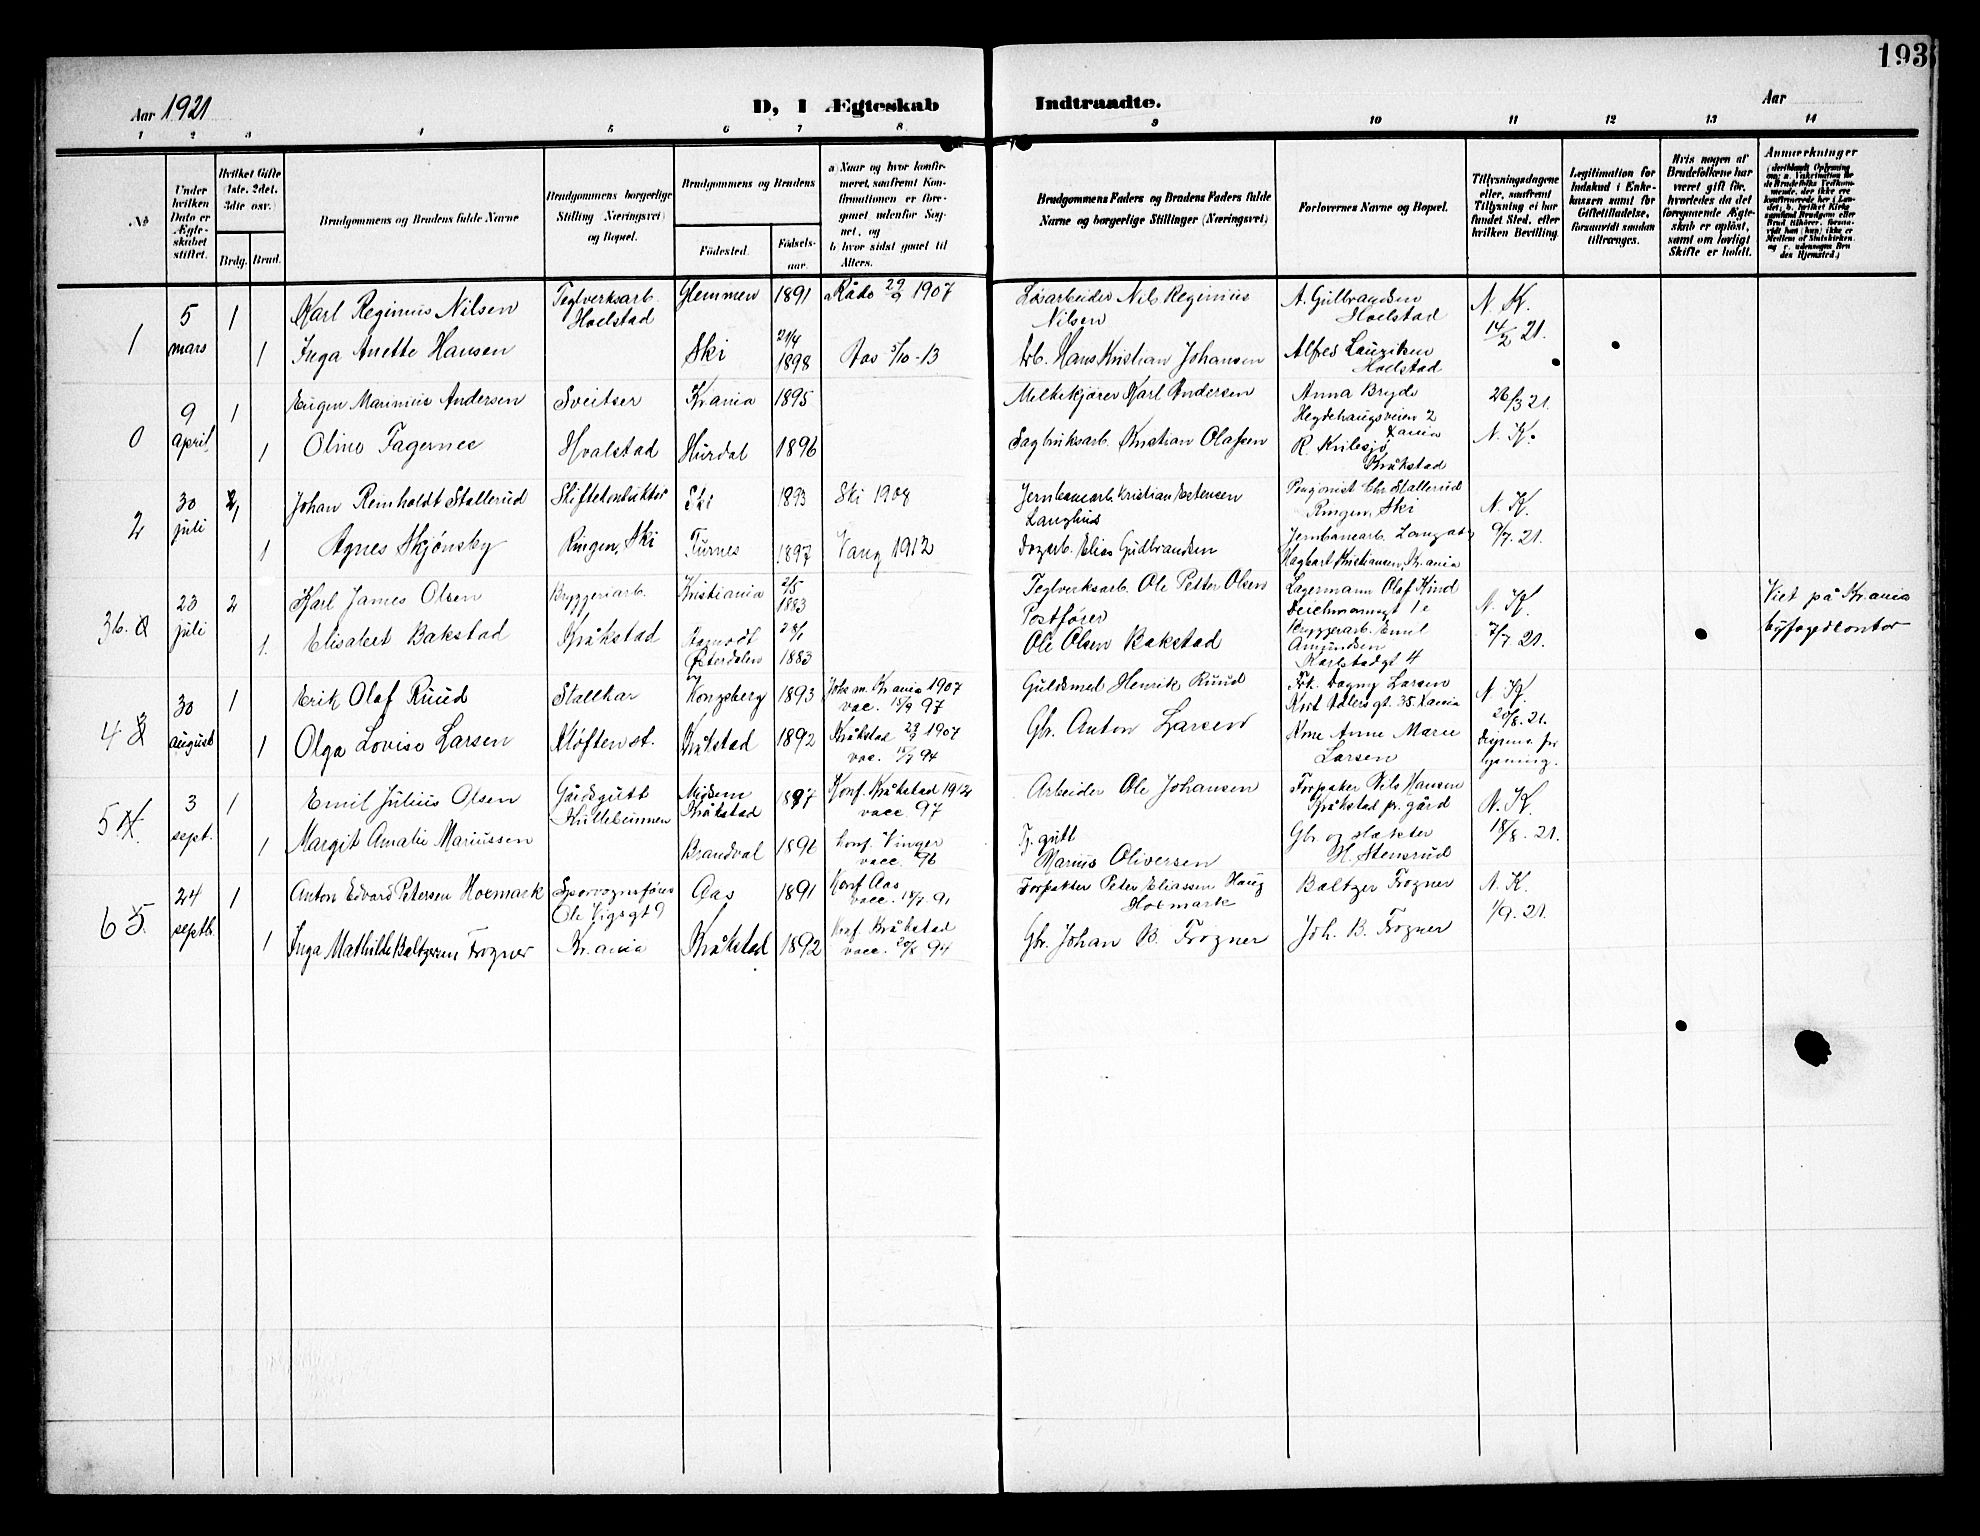 193
Aar 1921
D, I Ægteskab Indtraadte.
Aar
1 2 3 4 5 6 7 8. 9 10 11 12 13 14
№
Under hvilken Dato er Ægteskabet stiftet.
Hvilket Gifte (1ste. 2det. 3die osv.)
Brdg. Brud.
Brudgommens og Brudens fulde Navne
Brudgommens borgerlige Stilling (Næringsvei) og Bopæl.
Brudgommens og Brudens
Fødested.
Fødselsaar.
a) Naar og hvor konfirmeret, saafremt Konfirmationen er foregaaet udenfor Sognet, og
b) hvor sidst gaaet til Alters.
Brudgommens Faders og Brudens Faders fulde Navne og borgerlige Stillinger (Næringsvei).
Forlovernes Navne og Bopæl.
Tillysningsdagene eller, saafremt Tillysning ei har fundet Sted, efter hvilken Bevilling.
Legitimation for Indskud i Enkekassen samt for Giftetilladelse, forsaavidt saadan tiltrænges.
Hvis nogen af Brudefolkene har været gift før, hvorledes da det foregaaende Ægteskab er opløst, samt om lovligt Skifte er holdt.
Anmærkninger
1
5 mars
1
Karl Reginius Nilsen
Teglverksarb. Hoelstad
Glemmen
1891
a Råde 29/9 1907
Løsarbeider Nils Reginius Nilsen
A. Gulbrandsen Hoelstad
N. K.
14/2 21.
1
Inga Anette Hansen
Ski
21/4 1898
Aas 5/10-13
Arb. Hans Kristian Johansen
Alfred Lauritsen Hoelstad
0
9 april
1
Eugen Marinius Andersen
Sveitser
Kr.ania
1895
Melkekjører Karl Andersen
Anna Bryde
Hegdehaugsveien 2 Kania
26/3 21.
N. K.
1
Oline Fagernes
Hvalstad
Hurdal
1896
Sagbruksarb. Kristian Olafsen
R. Krilesjø Kråkstad
2
30 juli
1
Johan Reinholdt Stallerud
Skiftekonduktør
Ski
1893
Ski 1908
Jernbanearb. Kristian Estensen Langhus
Pensjonist Chr. Stallerud Ringen, Ski
N. K.
9/7. 21.
1
Agnes Skjønsby
Ringen, Ski
Furnes
1897
Vang 1912
Dagarb. Elias Gudbrandsen
Hagbart Kristiansen, Kr.ania
36.
23 juli
2
Karl James Olsen
Bryggeriarb.
Kristiania
2/5 1883
Teglverksarb. Ole Petter Olsen
Lagermann Olaf Kind
Deichmannsgt 1c
N. K.
7/7 21.
Viet på Kr.ania byfogedkontor
1.
Elisabet Bakstad
Kråkstad
Østerdalen
28/1 1883
Postfører
Ole Olsen Bakstad
Bryggeriarb. Emil Amundsen
Karlstadgt 4
4
30 august
1
Erik Olaf Ruud
Stallkar
Kongsberg
1893
Joh. m. Kr.ania 1907
vac. 18/9 97
Guldsmed Henrik Ruud
Frk. Dagny Larsen
Kort Adlers gt. 35. Kania
N. K.
20/8. 21.
Dispens. for lysning.
1
Olga Lovise Larsen
Kløften st.
Kråkstad
1892
Kråkstad 29/9 1907
vac. 18/7 94
Gbr. Anton Larsen
Kone Anne Marie Larsen
5
3 sept.
1
Emil Julius Olsen
Gårdsgutt
Hullebunnen
Kråkstad
1897
Konf. Kråkstad 1912
vacc. 97
Arbeider Ole Johansen
Forpakter Nils Hansen
Kråkstad pr.gård
N. K.
18/8. 21.
1
Margit Amalie Mariussen
Brandval
1896
konf. Vinger
vacc. 96
Tj. gutt
Marius Oliversen
Gbr og slakter
H. Stensrud
6
24 septb.
1
Anton Edvard Petersen Holmark
Sporvognsfører
Ole Vigsgt 9
Kr.ania
Aas
1891
Konf Aas
vacc. 18/7. 91
Forpakter Peter Eliassen Haug Holmark
Baltzer Frogner
N. K.
1/9. 21.
1
Inga Mathilde Baltzersen Frogner
Kråkstad
1892
Konf. Kråkstad
vacc. 20/8 94
Gbr. Johan B. Frogner
Joh. B. Frogner